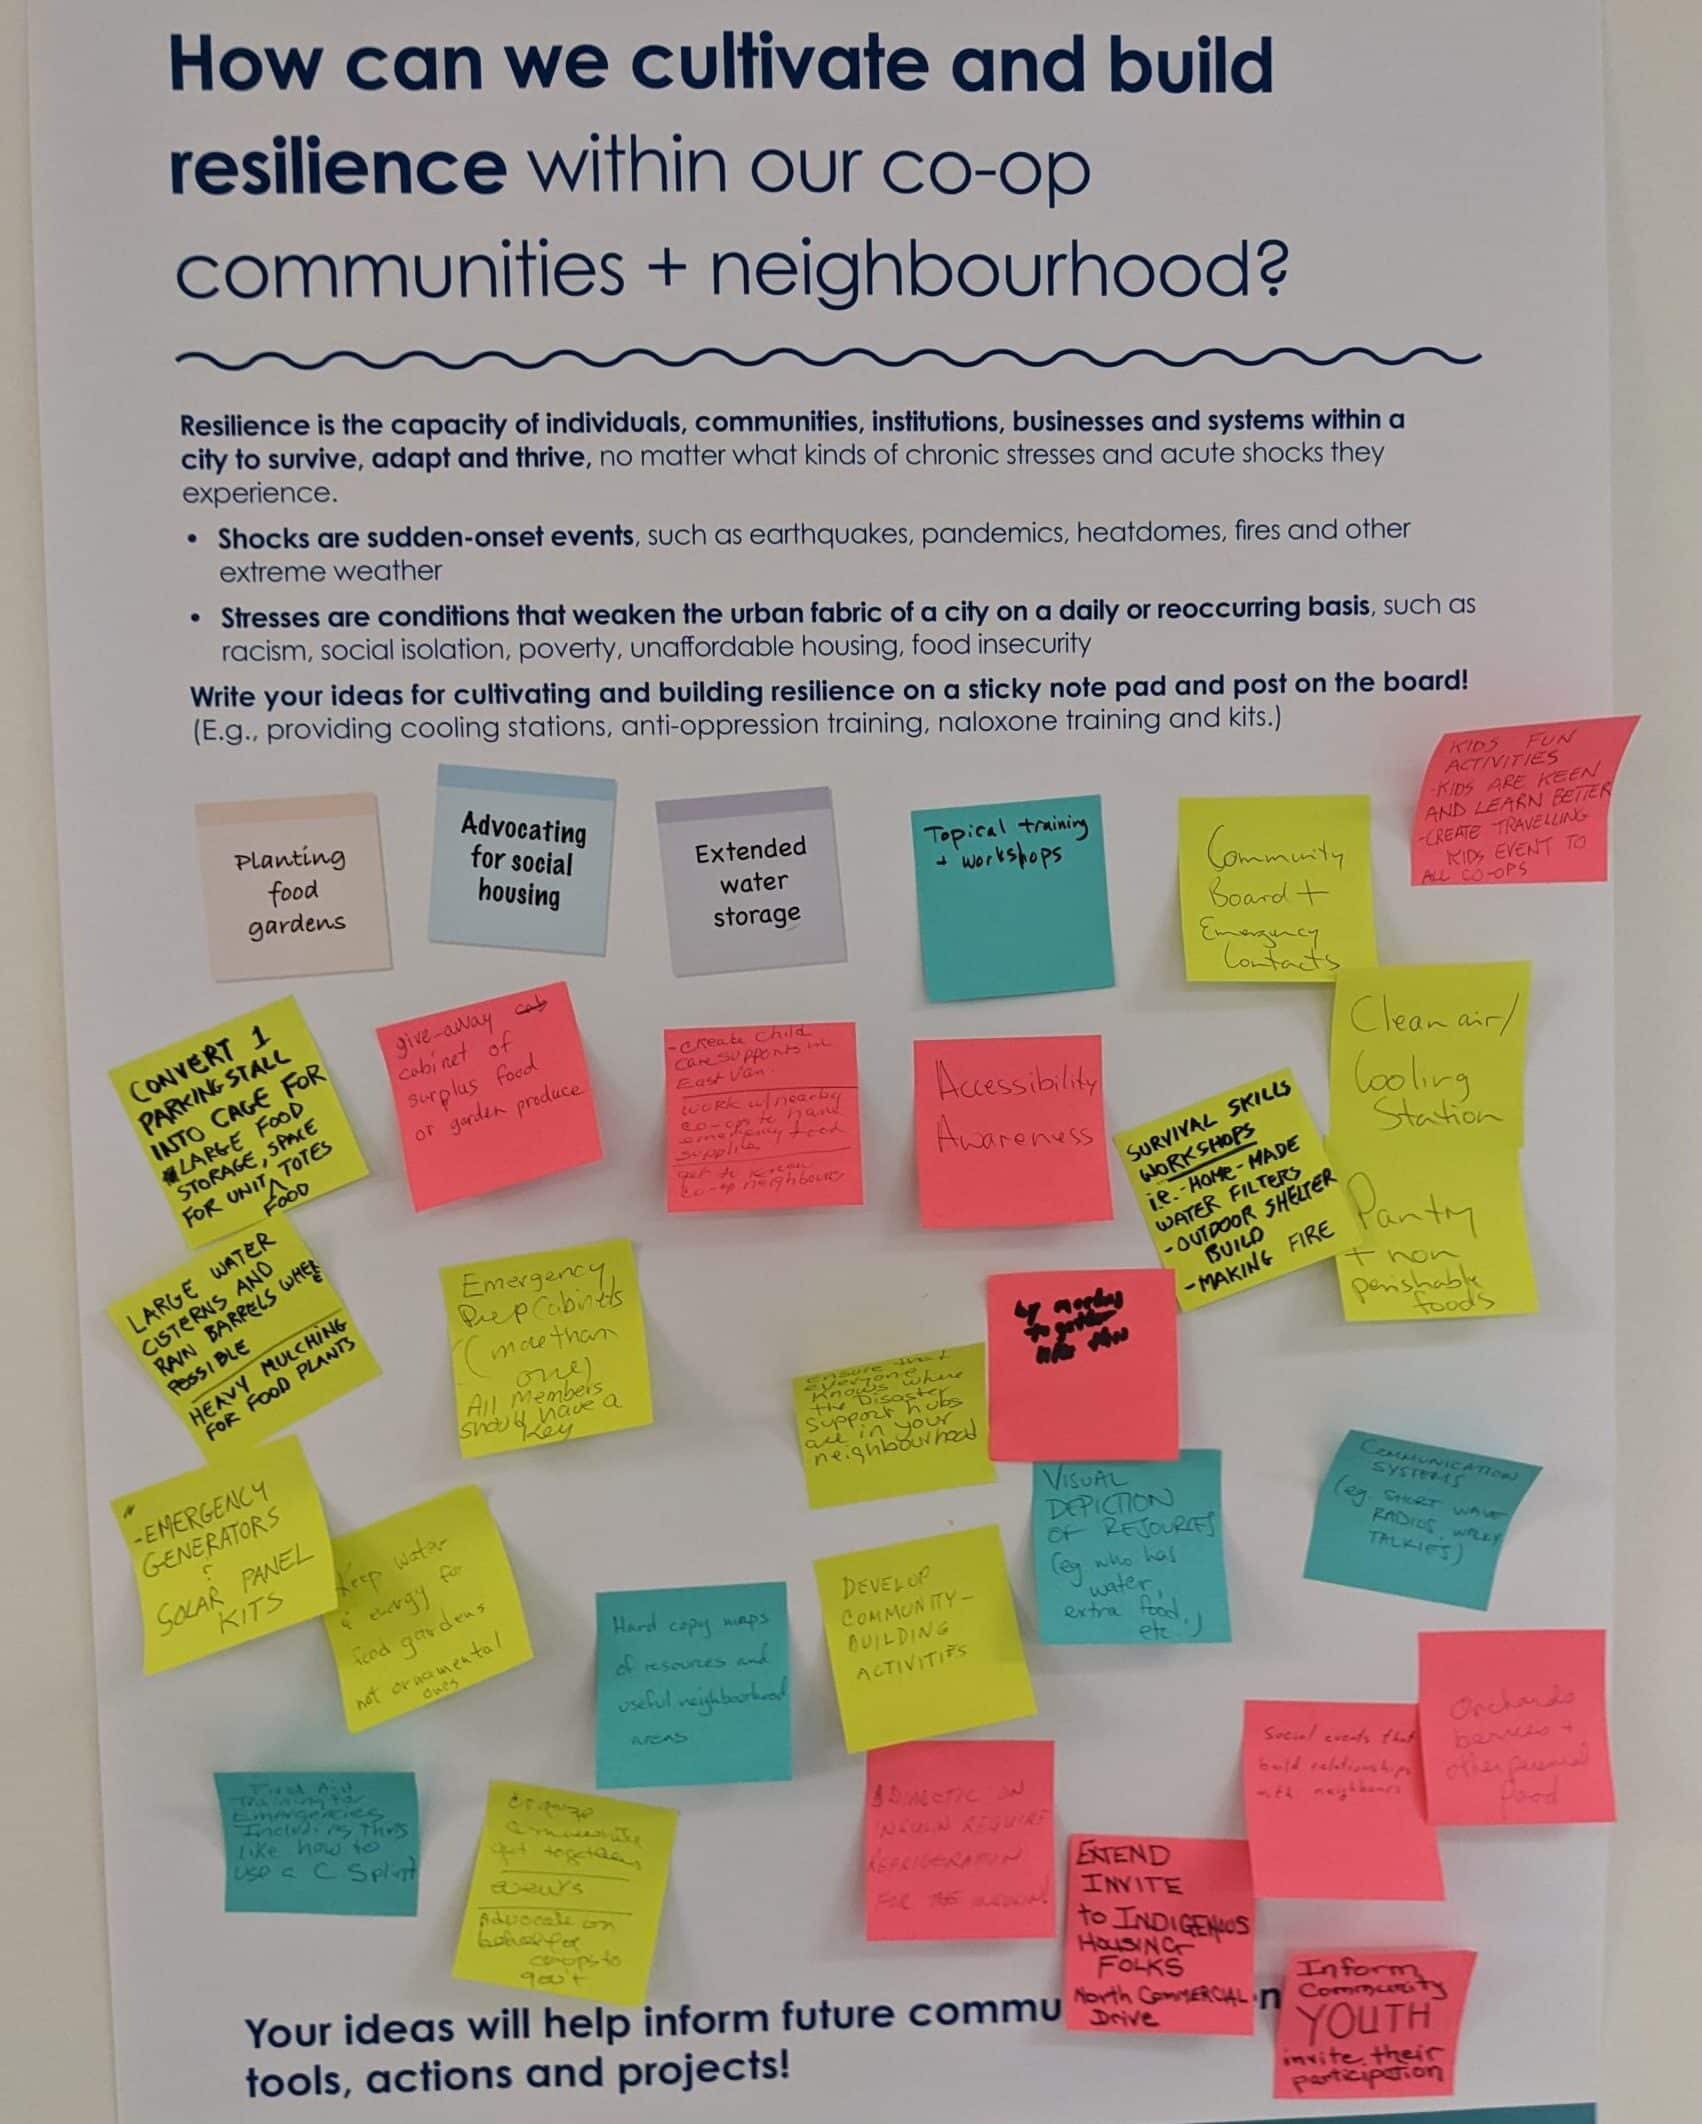 How can we cultivate and build
resilience within our co-op
communities + neighbourhood?
Resilience is the capacity of individuals, communities, institutions, businesses and systems within a
city to survive, adapt and thrive, no matter what kinds of chronic stresses and acute shocks they
experience.
• Shocks are sudden-onset events, such as earthquakes, pandemics, heatdomes, fires and other
extreme weather
• Stresses are conditions that weaken the urban fabric of a city on a daily or reoccurring basis, such as
racism, social isolation, poverty, unaffordable housing, food insecurity
Write your ideas for cultivating and building resilience on a sticky note pad and post on the board!
(E.g., providing cooling stations, anti-oppression training, naloxone training and kits.)
Planting
food
gardens
Advocating
for social
housing
Extended
water
storage
Topical training
+ workshops
Community
Board +
Emergency
Contacts
KIDS FUN
ACTIVITIES
-KIDS ARE KEEN
AND LEARN BETTER
-CREATE TRAVELLING
KIDS EVENT TO
ALL CO-OPS
CONVERT 1
PARKING STALL
INTO CAGE FOR
LARGE FOOD
STORAGE, SPACE
FOR UNIT TOTES
FOOD
give-away
cabinet of
surplus food
or garden produce
-Create Child
care supports in
East Van.
work w/nearby
co-ops to have
emergency food
supplies
get to know
co-op neighbours
Accessibility
Awareness
SURVIVAL SKILLS
WORKSHOPS
i.e. - HOME-MADE
WATER FILTERS
-OUTDOOR SHELTER
BUILD
-MAKING FIRE
Clean air/
Cooling
Station
Pantry
+ non
perishable
foods
LARGE WATER
CISTERNS AND
RAIN BARRELS WHERE
POSSIBLE
HEAVY MULCHING
FOR FOOD PLANTS
Emergency
Prep Cabinets
(more than
one)
All Members
should have a
Key
Ensure that
everyone
knows where
the Disaster
support hubs
are in your
neighbourhood
by meeting
together
VISUAL
DEPICTION
OF RESOURCES
(eg who has
water,
extra food,
etc.)
COMMUNICATION
SYSTEMS
(eg. SHORT WAVE
RADIOS, WALKY
TALKIES)
-EMERGENCY
GENERATORS
SOLAR PANEL
KITS
Keep water
& energy for
food gardens
not ornamental
ones
Hard copy maps
of resources and
useful neighbourhood
areas
DEVELOP
COMMUNITY-
BUILDING
ACTIVITIES
Social events that
build relationships
with neighbours
Orchards
berries +
other perennial
food
First Aid
Training for
Emergencies
Including things
like how to
use a C Splint
Organize
get togethers
events
Advocate on
behalf of
coops to
gov't
DIABETIC ON
INSULIN REQUIRE
REFRIGERATION
FOR THE
EXTEND
INVITE
to INDIGENOUS
HOUSING
FOLKS
North COMMERCIAL
Drive
Inform
Community
YOUTH
invite their
participation
Your ideas will help inform future commu
tools, actions and projects!